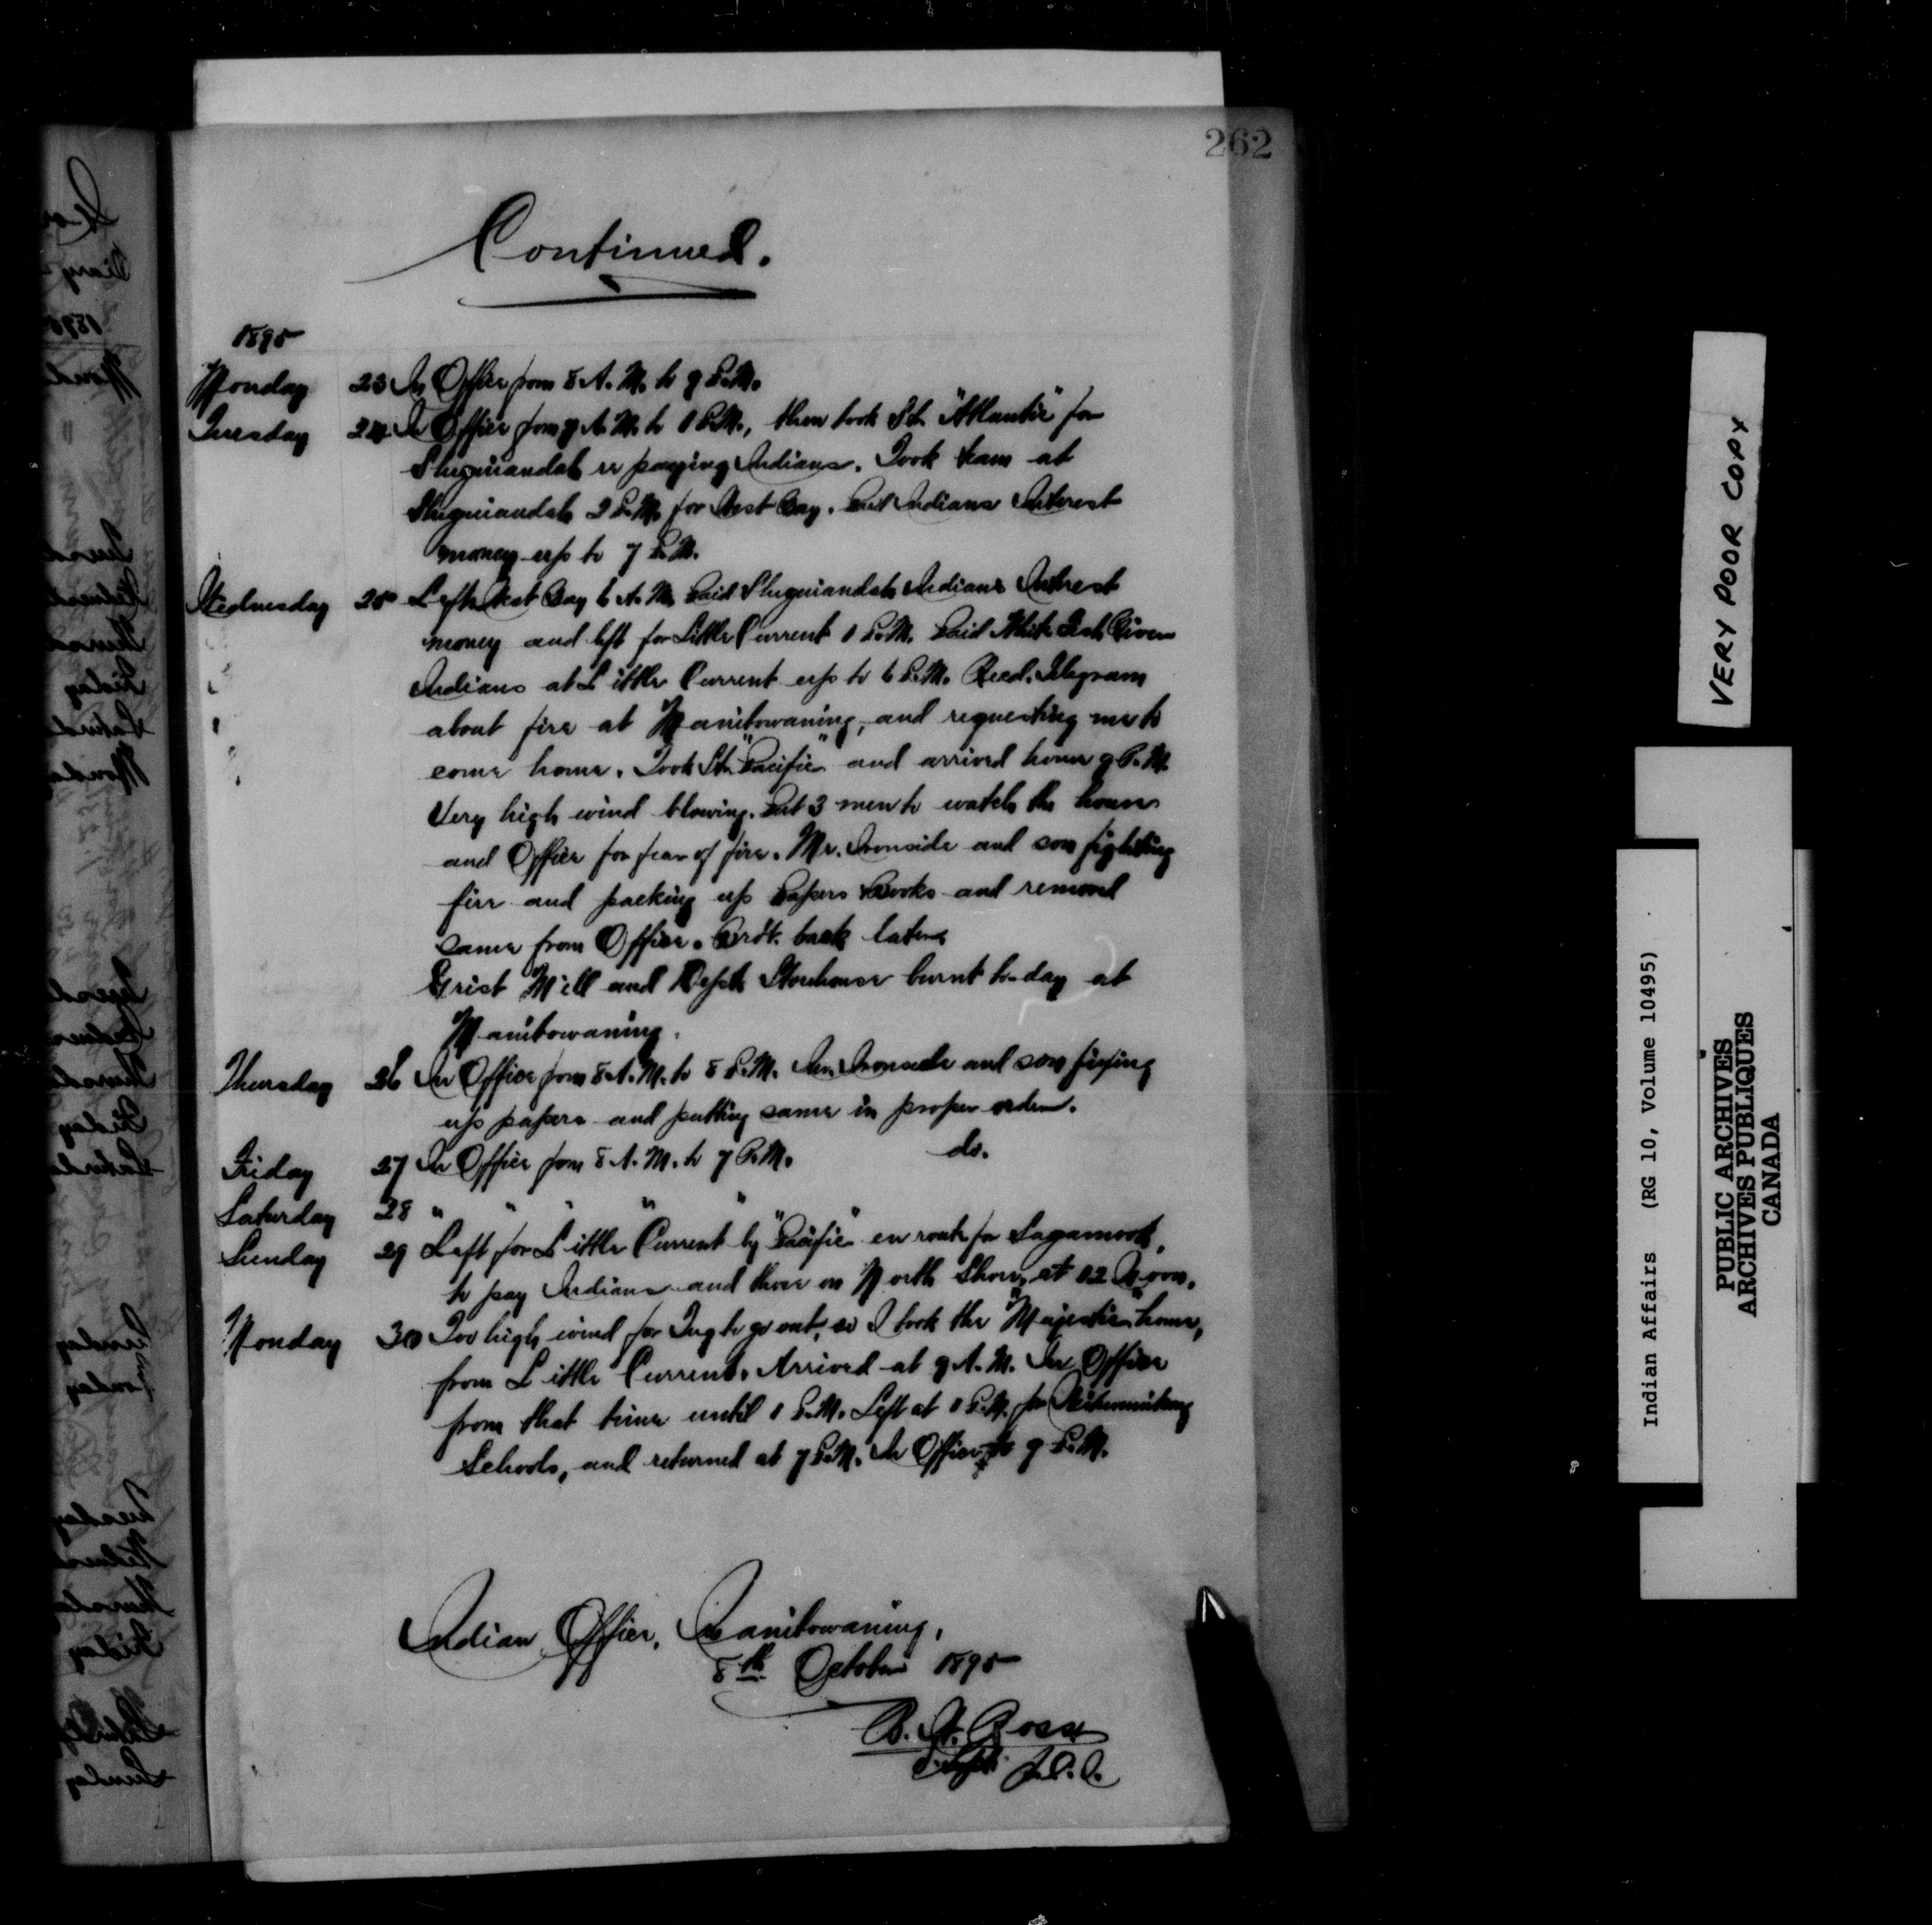 262
Continued.
1895
Monday 23 In Office from 8 A.M. to 9 P.M.
Tuesday 24 In Office from 9 A.M. to 1 P.M., then took Str. "Atlantic" for
Sheguiandah re paying Indians. Took team at
Sheguiandah 2 P.M. for West Bay. Paid Indians Interest
money up to 7 P.M.
Wednesday 25 Left West Bay 6 A.M. Paid Sheguiandah Indians Interest
money and left for Little Current 1 P.M. Paid White Fish River
Indians at Little Current up to 6 P.M. Recd. Telegram
about fire at Manitowaning, and requesting me to
come home. Took Str. "Pacific" and arrived home 9 P.M.
Very high wind blowing. Put 3 men to watch the house
and Office for fear of fire. Mr. Ironside and son fighting
fire and packing up Papers & Books and removed
same from Office. Brot. back later
Grist Mill and Dept. Storehouse burnt to-day at
Manitowaning.
Thursday 26 In Office from 8 A.M. to 8 P.M. Mr. Ironside and son fixing
up papers and putting same in proper order.
Friday 27 In Office from 8 A.M. to 7 P.M. do.
Saturday 28 " " " " "
Sunday 29 Left for Little Current by "Pacific" en route for Sagamook,
to pay Indians and those on North Shore, at 12 Noon.
Monday 30 Too high wind for Tug to go out, so I took the "Majestic" home,
from Little Current. Arrived at 9 A.M. In Office
from that time until 1 P.M. Left at 1 P.M. for
Schools, and returned at 7 P.M. In Office to 9 P.M.
Indian Office, Manitowaning,
8th October 1895
B. W. Ross
VERY POOR COPY
Indian Affairs (RG 10, Volume 10495)
PUBLIC ARCHIVES
ARCHIVES PUBLIQUES
CANADA